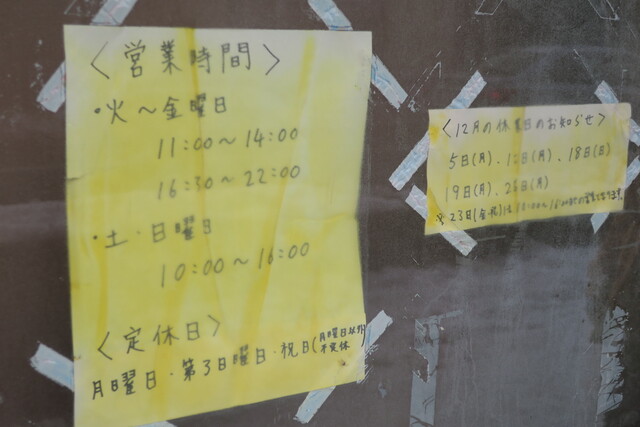 〈営業時間〉
・火～金曜日
11:00～14:00
16:30～22:00
・土・日曜日
10:00～16:00
〈定休日〉
月曜日・第3日曜日・祝日(月曜日以外不定休)
〈12月の休業日のお知らせ〉
5日(月)、12日(月)、18日(日)
19日(月)、26日(月)
※23日(金・祝)は